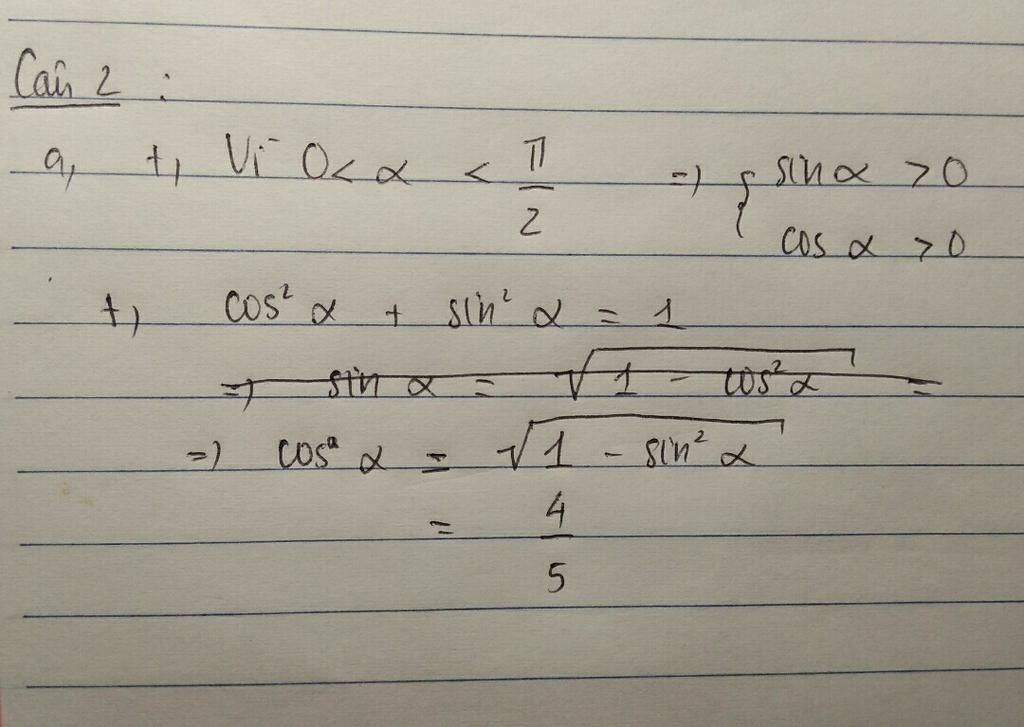 Câu 2 :
a, +, Vì 0 < α < π/2 => { sin α > 0
cos α > 0
+, cos² α + sin² α = 1
=> sin α = √(1 - cos² α) =
=> cos α = √(1 - sin² α)
= 4/5